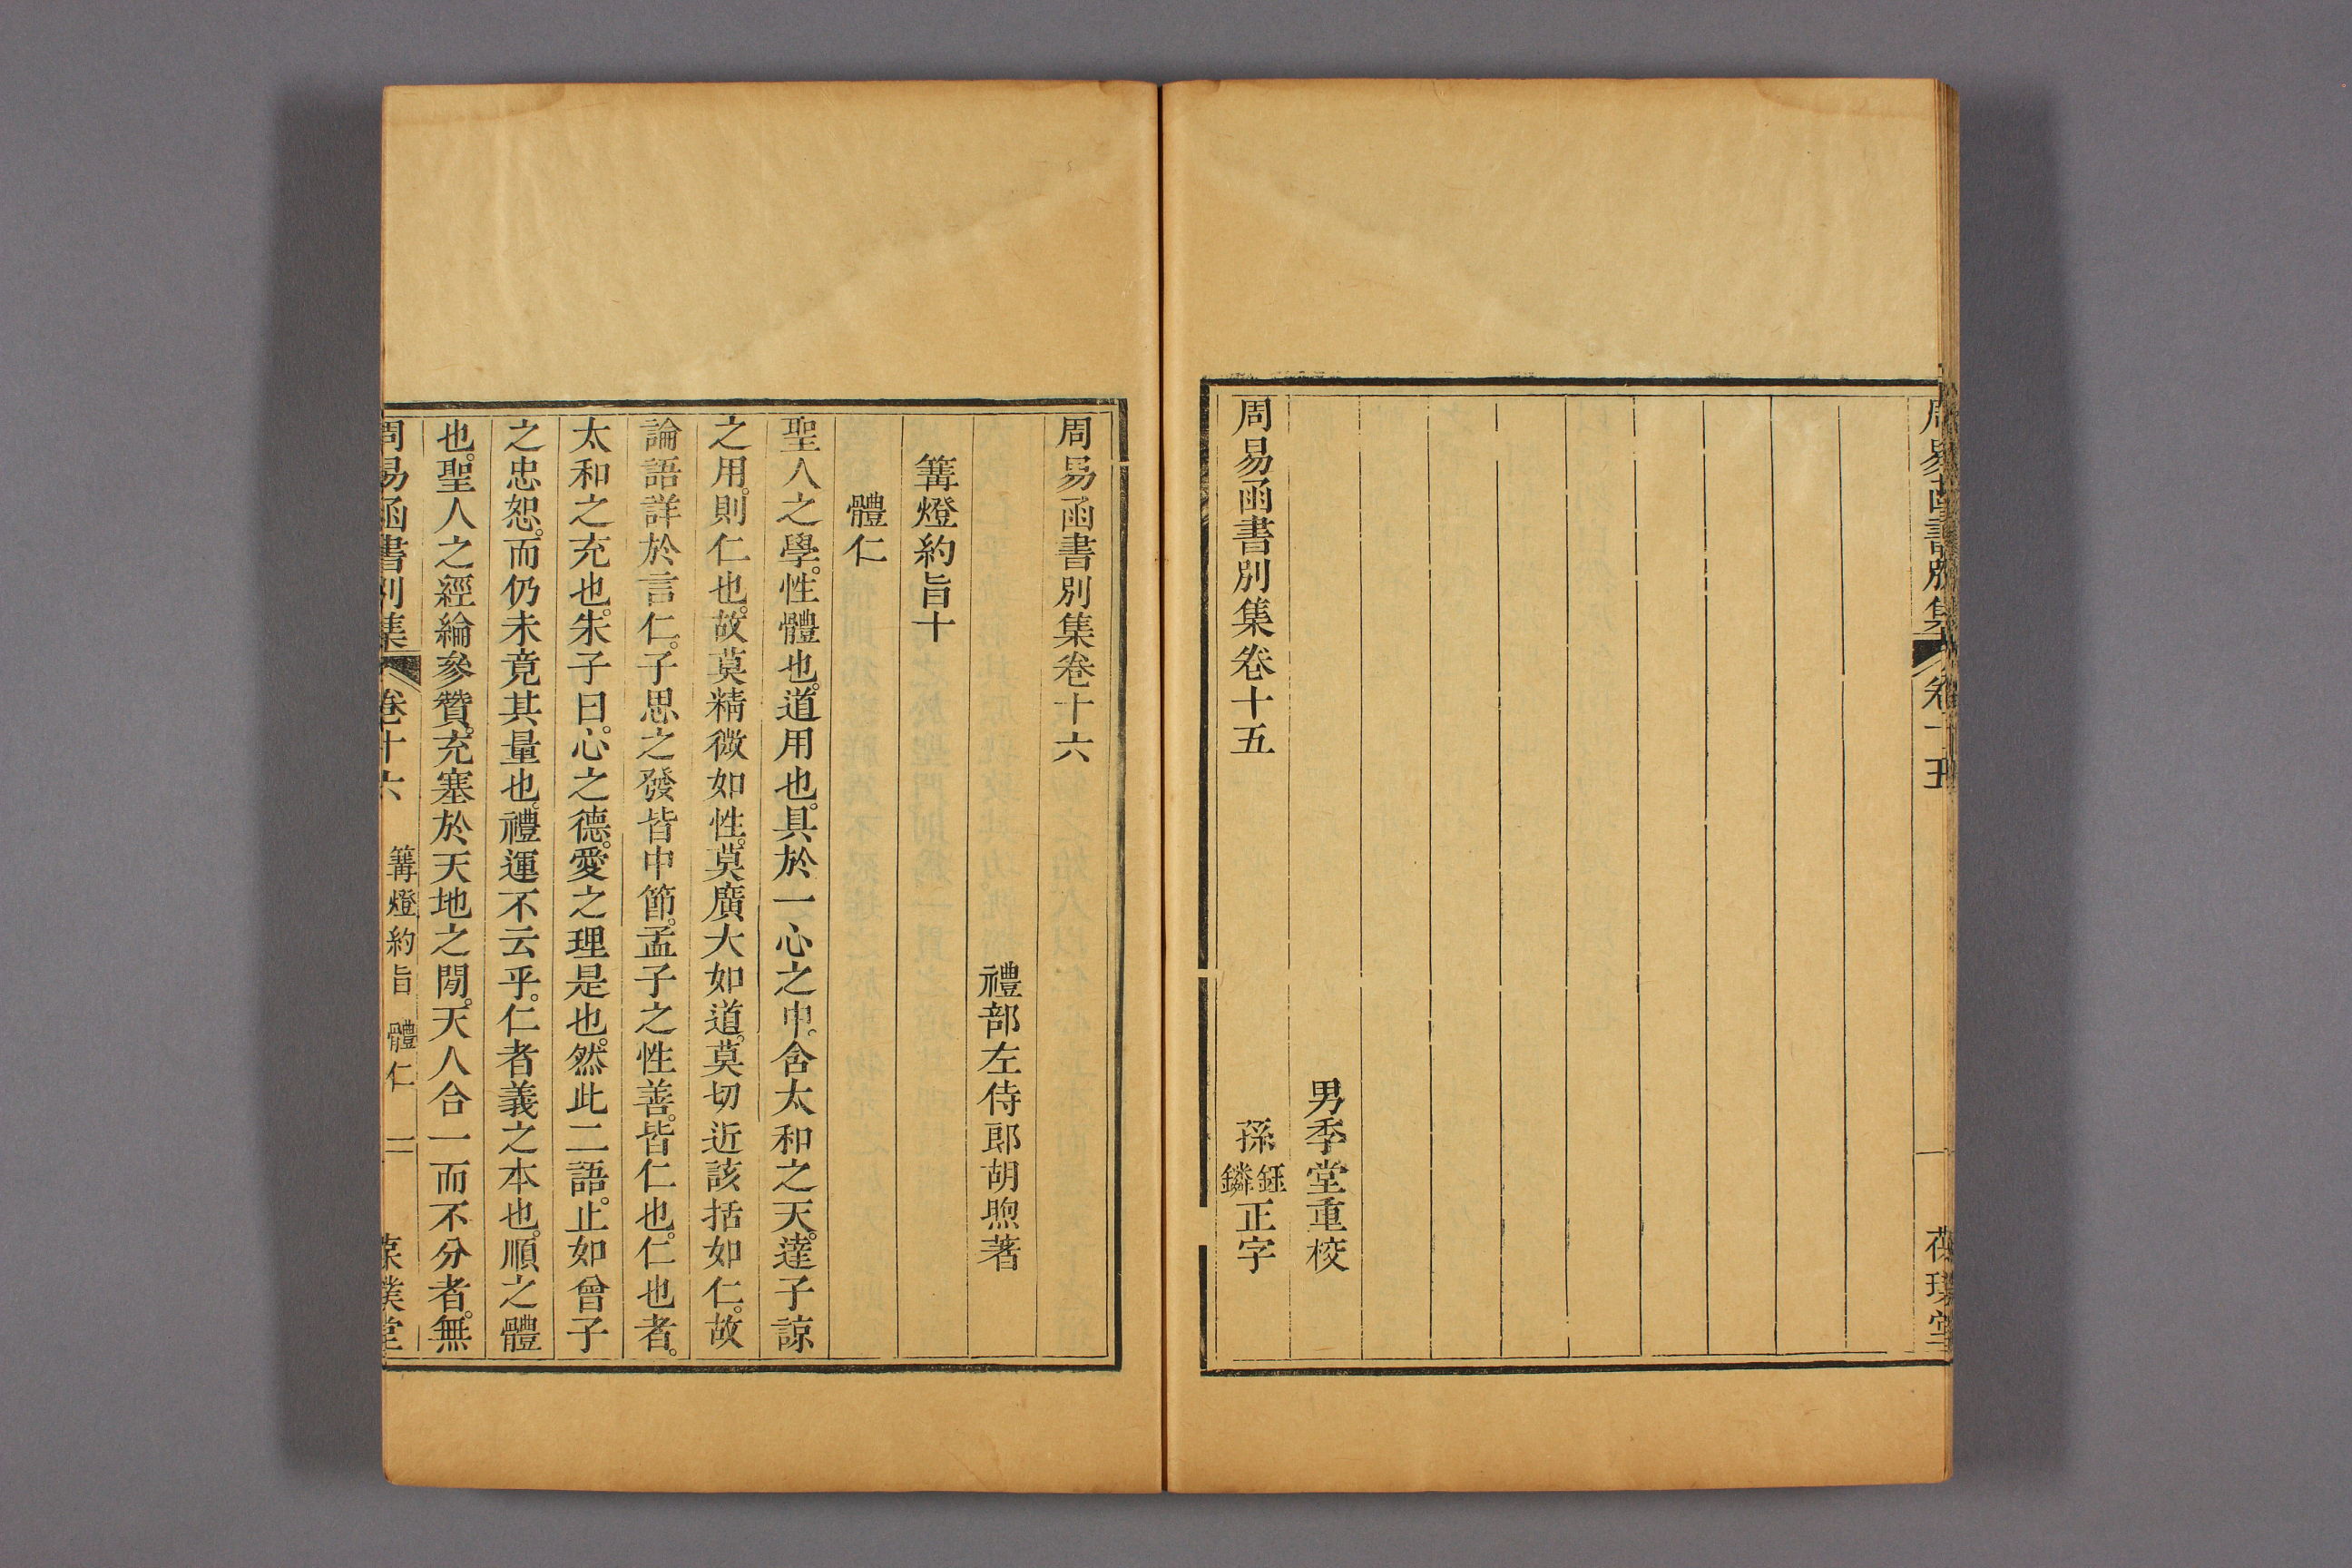 周易函書別集
卷十五
男季堂重校
周易函書別集卷十五
孫鈺鏻正字
周易函書別集卷十六
禮部左侍郎胡煦著
篝燈約旨十
體仁
聖人之學。性體也。道用也。具於一心之中。含太和之天。達子諒
之用。則仁也。故莫精微如性。莫廣大如道。莫切近該括如仁。故
論語詳於言仁。子思之發皆中節。孟子之性善。皆仁也。仁也者。
太和之充也。朱子曰。心之德。愛之理是也。然此二語。止如曾子
之忠恕。而仍未竟其量也。禮運不云乎。仁者義之本也。順之體
也。聖人之經綸參贊。充塞於天地之閒。天人合一而不分者。無
周易函書別集
卷十六
篝燈約旨 體仁
一
葆璞堂